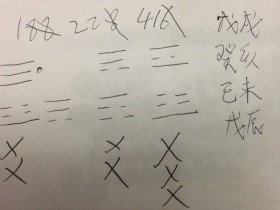 188 228 416 戊戌
癸亥
己未
戊辰
X X X
X X X
X